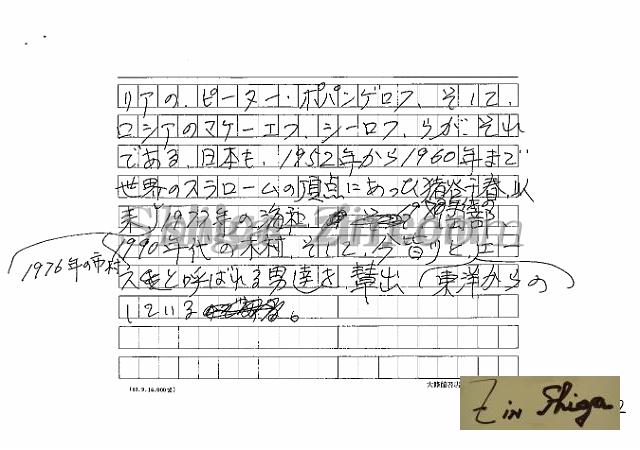 リアの、ピーター・ポパンゲロフ、そして、
ロシアのマケーエフ、シーロフ、らが、それ
である。日本も、1952年から1960年まで
世界のスラロームの頂点にあった猪谷千春、以
来、1972年の
1990年代の木村、そして、今皆川と、エー
1976年の市村
スと呼ばれる男達を、輩出 東洋からの
している。
Shiga Zin.com
Z in Shiga
2